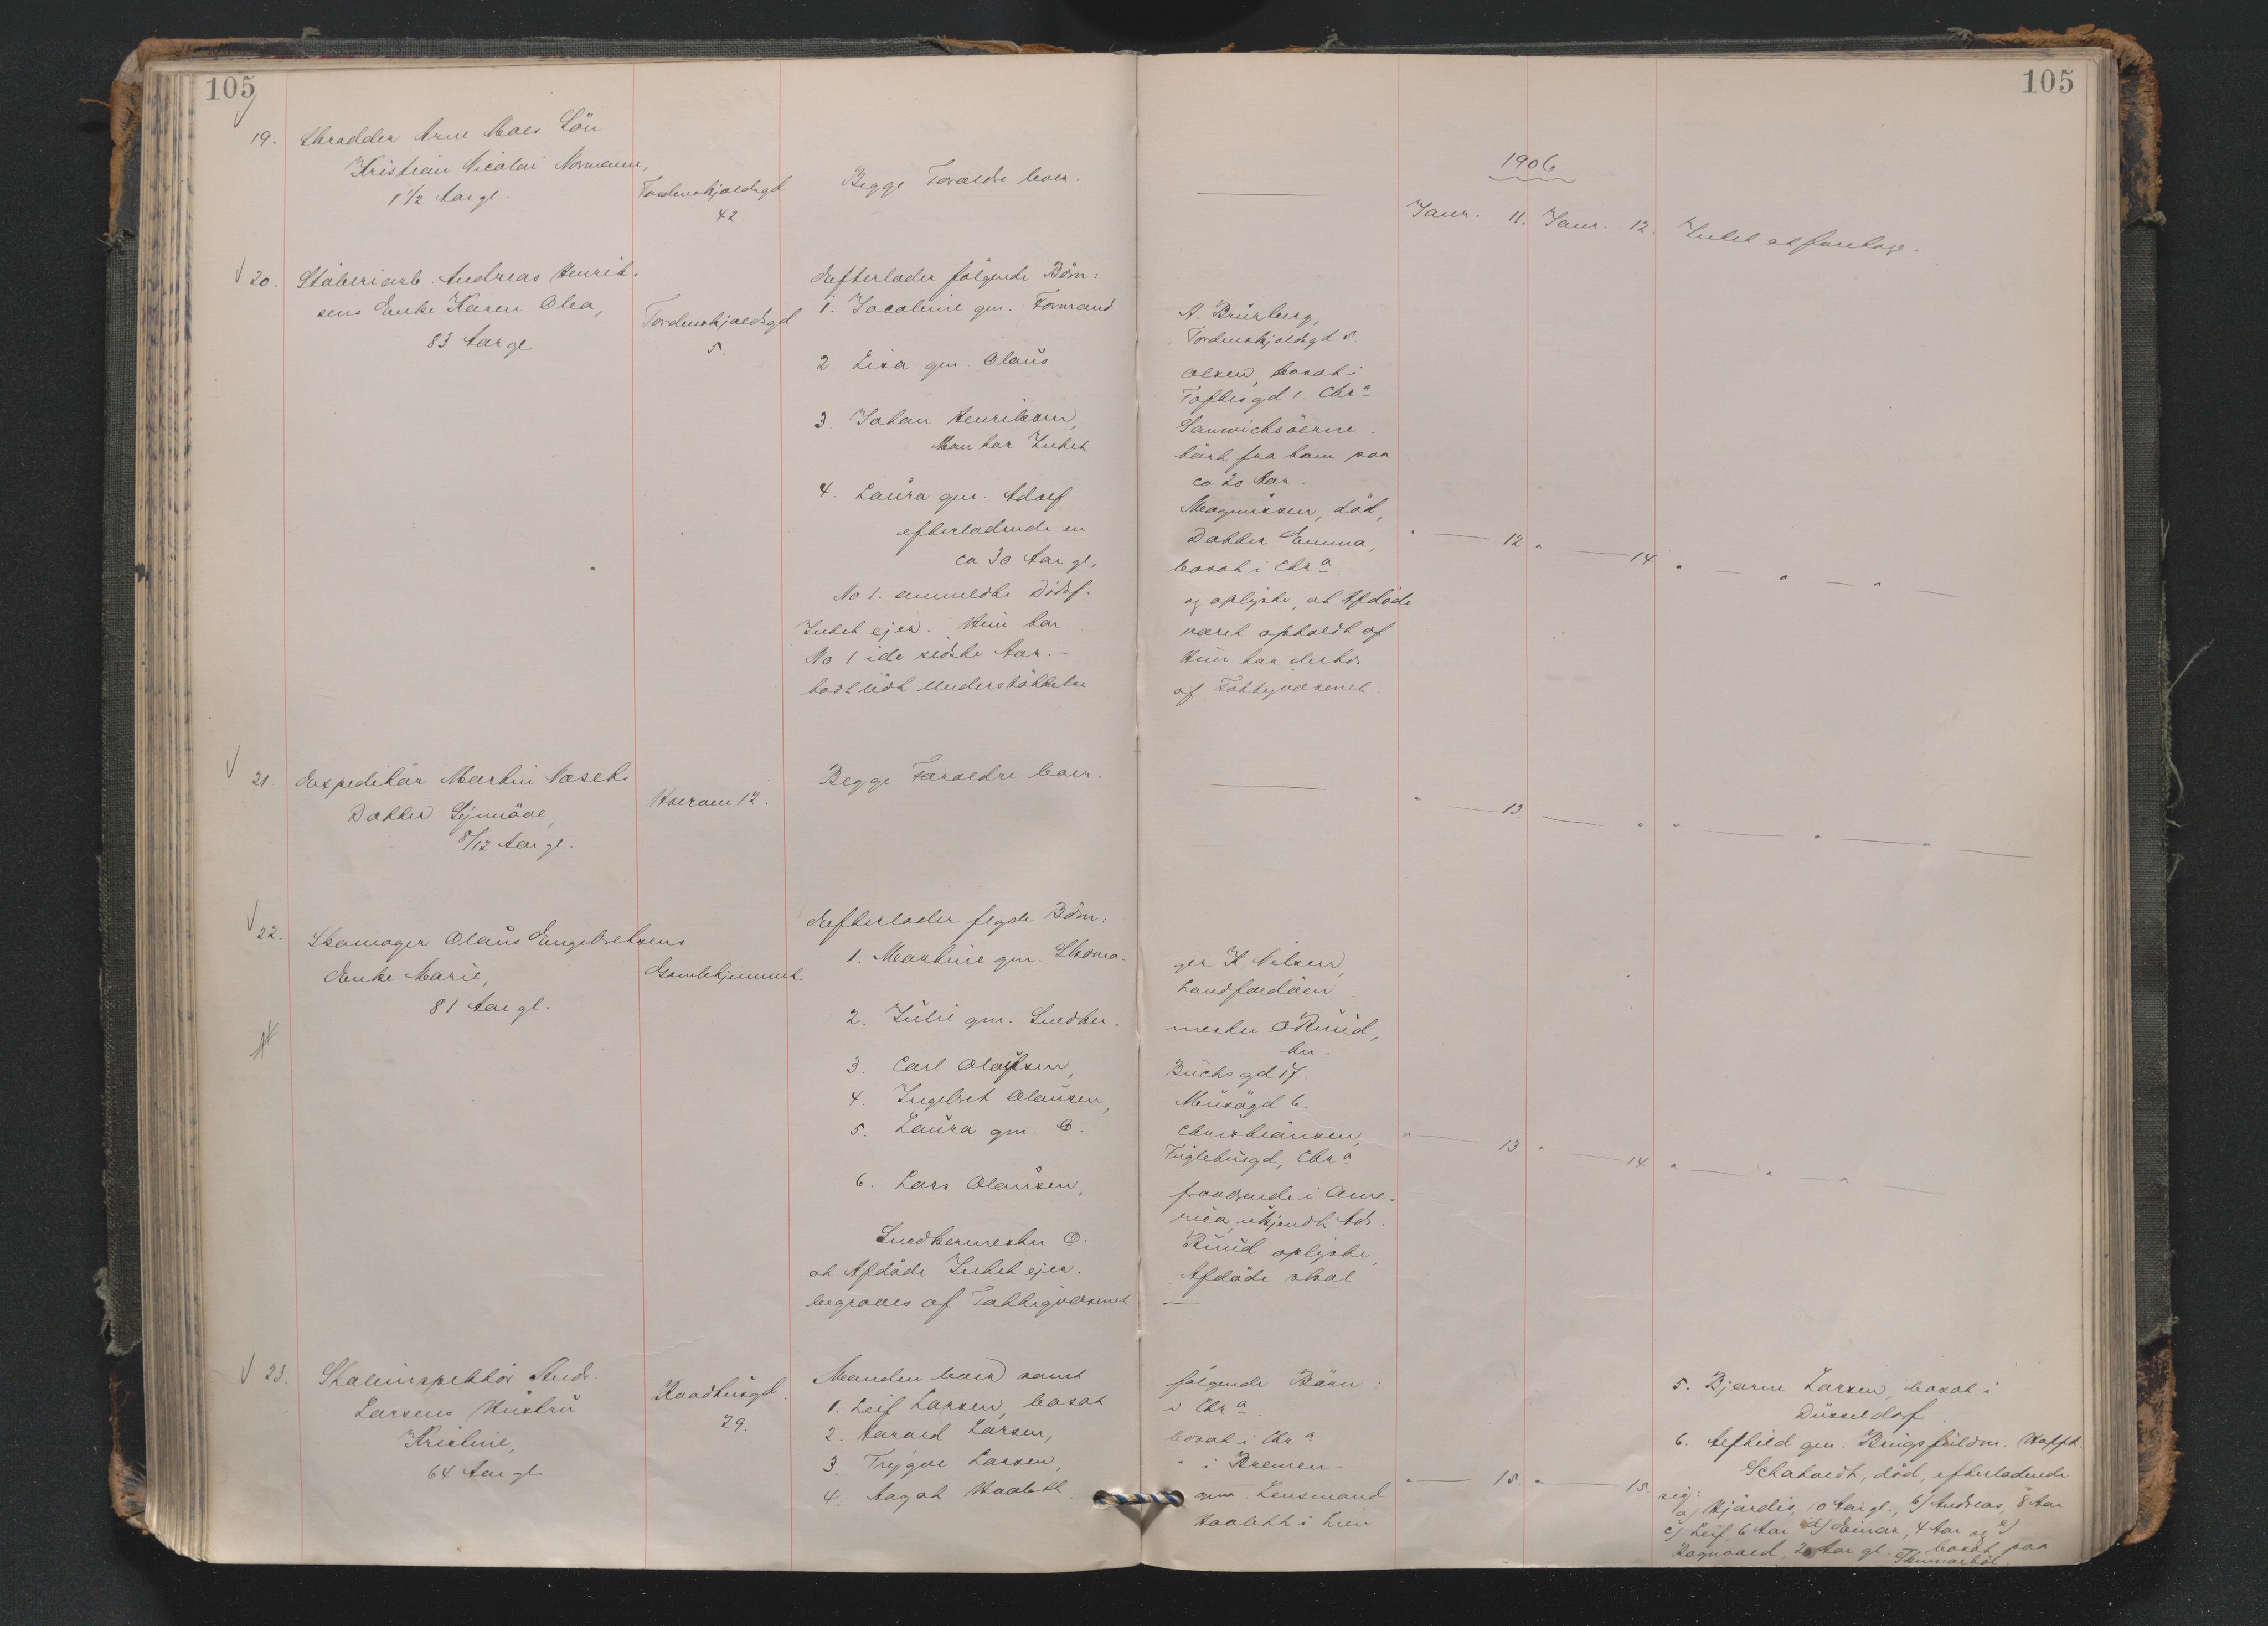 105
105
19. Skrædder Arne Moes Sön
Kristian Nicolai Normann,
1 1/2 Aar gl.
Tordenskjoldsgd
42.
Begge Forældre lever.
1906
Janr. 11. Janr. 12. Intet at foretage.
20. Støberiarb. Andreas Henrik-
sens Enke Karen Olea,
83 Aar gl
Tordenskjoldsgd
5.
Efterlader følgende Börn:
1. Jacobine gm. Formand
A. Brunberg,
Tordenskjoldsgd 5.
2. Lisa gm. Olaus
Olsen, bosat i
Toftesgd 1. Chra
3. Johan Henriksen,
Sanwichsöerne.
Man har Intet
hört fra ham paa
ca 20 Aar.
4. Laura gm. Adolf
Magnussen, död,
efterladende en
Datter Emma,
ca 30 Aar gl,
bosat i Chra
No 1. anmeldte Dödsf.
og oplyste, at Afdöde
Intet ejer. Hun har
været opholdt af
No 1 i de sidste Aar.-
Hun har derhos
havt lidt Understöttelse
af Fattigvæsenet.
" 12 " 14 " " "
21. Expeditör Martin Næsets
Datter Synnöve,
8/12 Aar gl.
Hverven 12.
Begge Forældre lever.
" 13. " " " "
22. Skomager Olaus Engebretsens
Enke Marie,
81 Aar gl.
Gamlehjemmet.
Efterlader flgde Börn:
1. Martine gm. Skoma-
ger K. Nilsen,
Landfaldöen
2. Julie gm. Snedker-
mester O Ruud,
her
3. Carl Olafsen,
Buchs gd 17.
4. Ingebret Olausen,
Musögd 6.
5. Laura gm. C.
Christiansen,
Fuglehusgd, Chra
6. Lars Olausen,
fraværende i Ame-
rica, ukjendt Ads.
Snedkermester O.
Ruud oplyste,
at Afdöde Intet ejer.
Afdöde skal
begraves af Fattigvæsenet
" 13 " 14 " " "
23. Staleinspektör Andr.
Larsens Hustru
Kristine,
64 Aar gl
Raadhusgd.
29.
Manden lever samt
følgende Börn:
1. Leif Larsen, bosat
i Chra
2. Harald Larsen,
bosat i Chra
3. Trygve Larsen,
" i Bremen.
4. Aagot
gm. Lensmand
i Lier
" 15. " 15.
5. Bjarne Larsen, bosat i
Düsseldorf
6. Alfhild gm.
död, efterladende
sig:
a) Hjördis, 10 Aar gl, b) Andreas, 8 Aar
c) Leif 6 Aar d) Einar, 4 Aar og e)
Ragnvald, 2 Aar gl. bosat paa